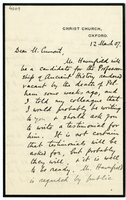 CHRIST CHURCH,
OXFORD.
12 March 07
Dear M. Cumont,
Mr. Haverfield will
be a candidate for the Professor-
ship of Ancient History rendered
vacant by the death of Mr.
some weeks ago, and
I told my colleague that
I would probably be writing
to you & should ask you
to write a testimonial for
him. It is not certain
that testimonials will be
asked for; but probably
they will, & it is well
to be ready. Mr. Haverfield
is regarded by public